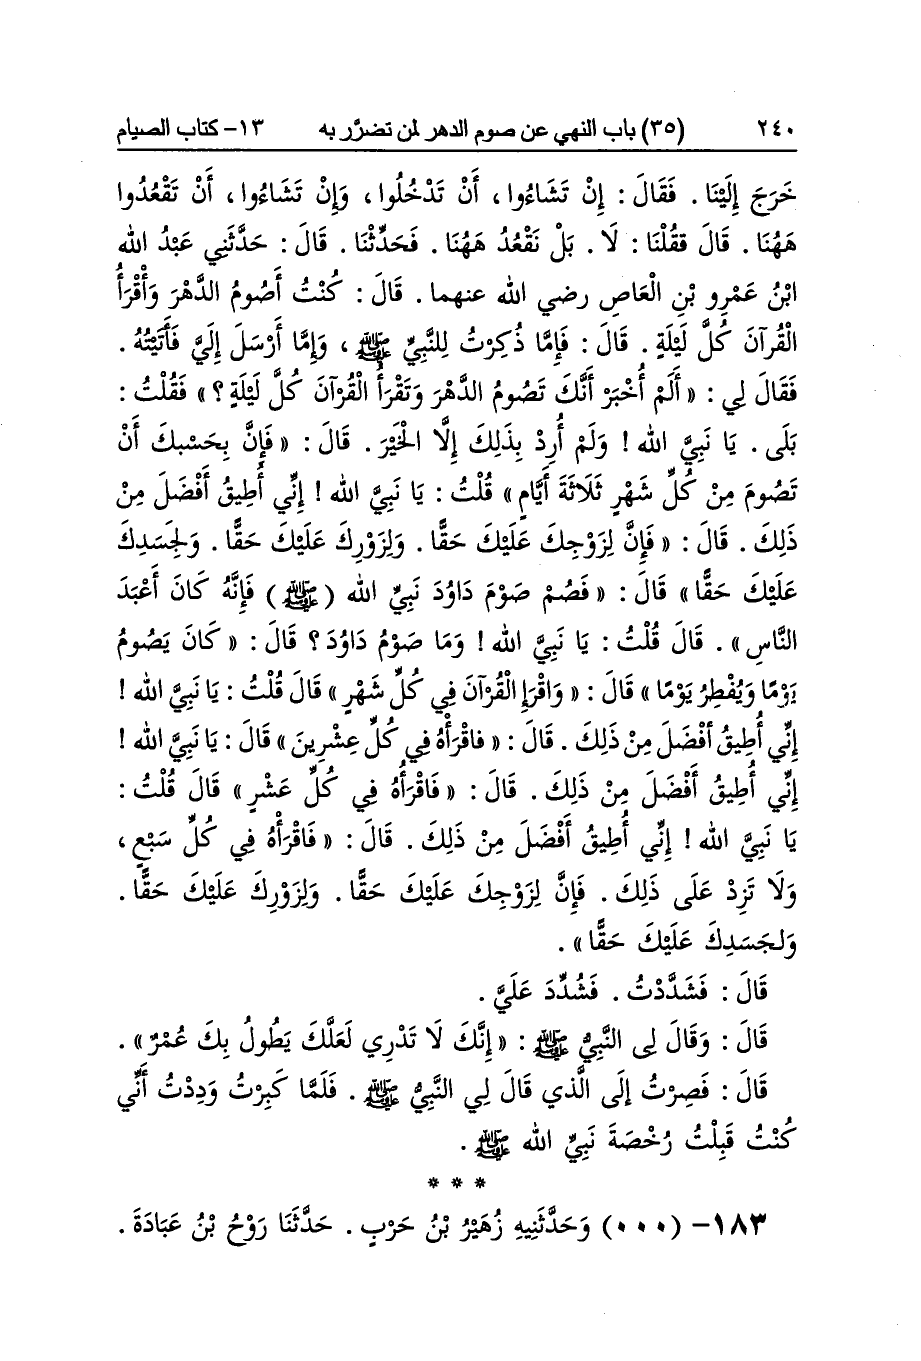 ٢٤٠ (٣٥) باب النهي عن صوم الدهر لمن تضرَّر به ١٣- كتاب الصيام
خَرَجَ إِلَيْنَا . فَقَالَ : إِنْ تَشَاءُوا ، أَنْ تَدْخُلُوا ، وَإِنْ تَشَاءُوا ، أَنْ تَقْعُدُوا
هَهُنَا . قَالَ فَقُلْنَا : لَا . بَلْ نَقْعُدُ هَهُنَا . فَحَدِّثْنَا . قَالَ : حَدَّثَنِي عَبْدُ الله
ابْنُ عَمْرِو بْنِ الْعَاصِ رضي الله عنهما . قَالَ : كُنْتُ أَصُومُ الدَّهْرَ وَأَقْرَأُ
الْقُرآنَ كُلَّ لَيْلَةٍ . قَالَ : فَإِمَّا ذُكِرْتُ لِلنَّبِيِّ ﷺ ، وَإِمَّا أَرْسَلَ إِلَيَّ فَأَتَيْتُهُ .
فَقَالَ لِي : « أَلَمْ أُخْبَرْ أَنَّكَ تَصُومُ الدَّهْرَ وَتَقْرَأُ الْقُرْآنَ كُلَّ لَيْلَةٍ ؟ » فَقُلْتُ :
بَلَى . يَا نَبِيَّ الله ! وَلَمْ أُرِدْ بِذَلِكَ إِلَّا الْخَيْرَ . قَالَ : « فَإِنَّ بِحَسْبِكَ أَنْ
تَصُومَ مِنْ كُلِّ شَهْرٍ ثَلَاثَةَ أَيَّامٍ » قُلْتُ : يَا نَبِيَّ الله ! إِنِّي أُطِيقُ أَفْضَلَ مِنْ
ذَلِكَ . قَالَ : « فَإِنَّ لِزَوْجِكَ عَلَيْكَ حَقًّا . وَلِزَوْرِكَ عَلَيْكَ حَقًّا . وَلِجَسَدِكَ
عَلَيْكَ حَقًّا » قَالَ : « فَصُمْ صَوْمَ دَاوُدَ نَبِيِّ الله (ﷺ) فَإِنَّهُ كَانَ أَعْبَدَ
النَّاسِ » . قَالَ قُلْتُ : يَا نَبِيَّ الله ! وَمَا صَوْمُ دَاوُدَ ؟ قَالَ : « كَانَ يَصُومُ
يَوْمًا وَيُفْطِرُ يَوْمًا » قَالَ : « وَاقْرَإِ الْقُرْآنَ فِي كُلِّ شَهْرٍ » قَالَ قُلْتُ : يَا نَبِيَّ الله !
إِنِّي أُطِيقُ أَفْضَلَ مِنْ ذَلِكَ . قَالَ : « فَاقْرَأْهُ فِي كُلِّ عِشْرِينَ » قَالَ : يَا نَبِيَّ الله !
إِنِّي أُطِيقُ أَفْضَلَ مِنْ ذَلِكَ . قَالَ : « فَاقْرَأْهُ فِي كُلِّ عَشْرٍ » قَالَ قُلْتُ :
يَا نَبِيَّ الله ! إِنِّي أُطِيقُ أَفْضَلَ مِنْ ذَلِكَ . قَالَ : « فَاقْرَأْهُ فِي كُلِّ سَبْعٍ ،
وَلَا تَزِدْ عَلَى ذَلِكَ . فَإِنَّ لِزَوْجِكَ عَلَيْكَ حَقًّا . وَلِزَوْرِكَ عَلَيْكَ حَقًّا .
وَلِجَسَدِكَ عَلَيْكَ حَقًّا » .
قَالَ : فَشَدَّدْتُ . فَشُدِّدَ عَلَيَّ .
قَالَ : وَقَالَ لِى النَّبِيُّ ﷺ : « إِنَّكَ لَا تَدْرِي لَعَلَّكَ يَطُولُ بِكَ عُمْرٌ » .
قَالَ : فَصِرْتُ إِلَى الَّذي قَالَ لِي النَّبِيُّ ﷺ . فَلَمَّا كَبِرْتُ وَدِدْتُ أَنِّي
كُنْتُ قَبِلْتُ رُخْصَةَ نَبِيِّ الله ﷺ .
* * *
١٨٣- (٠٠٠) وَحَدَّثَنِيهِ زُهَيْرُ بْنُ حَرْبٍ . حَدَّثَنَا رَوْحُ بْنُ عَبَادَةَ .